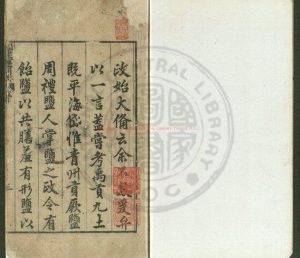 政始大脩云余不敏爰弁
以一言蓋嘗考禹貢九土
既平海岱惟青州貢厥鹽
周禮鹽人掌鹽之政令有
飴鹽以共膳羞有形鹽以
CENTRAL LIBRARY